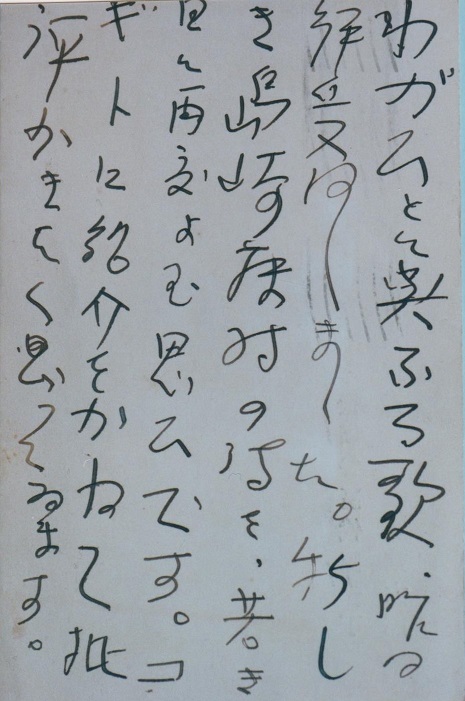 わがひとに與ふる歌、昨日
受 しました。新し
き島崎藤村の詩を、若き
日に再度よむ思ひです。「
ギトに紹介をかねて批
評かきたく思つてゐます。